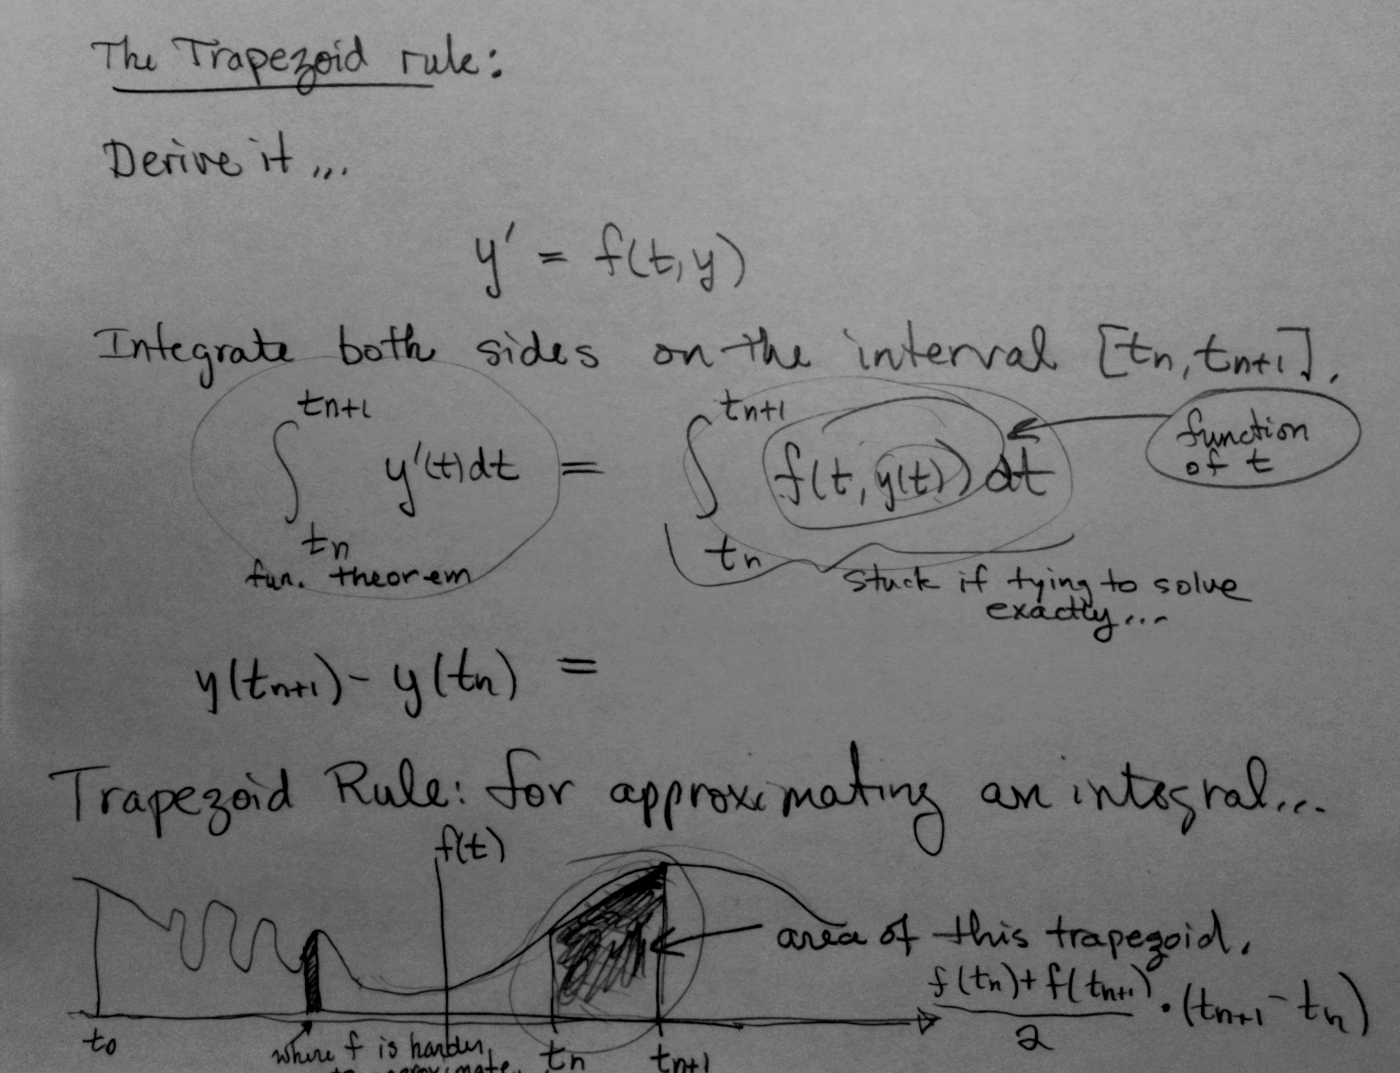 The Trapezoid rule:
Derive it ...
y' = f(t, y)
Integrate both sides on the interval [tn, tn+1].
∫ tn+1 tn y'(t)dt = ∫ tn+1 tn f(t, y(t)) dt
function
of t
fun. theorem
stuck if trying to solve
exactly...
y(tn+1) - y(tn) =
Trapezoid Rule: for approximating an integral...
f(t)
area of this trapezoid.
f(tn) + f(tn+1) / 2 · (tn+1 - tn)
t0
where f is harder
to approximate.
tn
tn+1